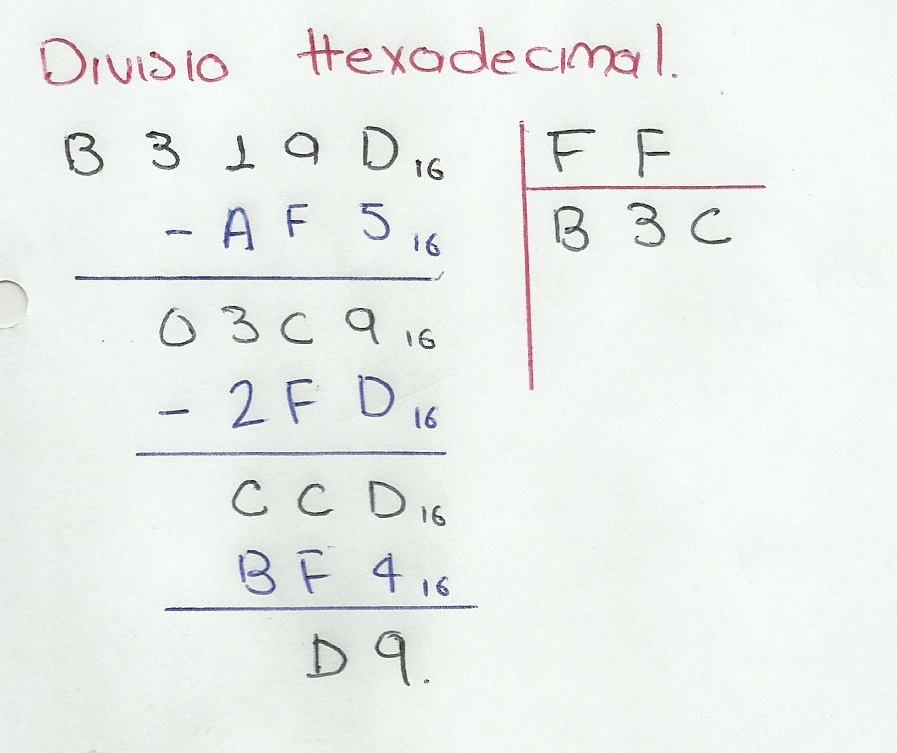 Divisio Hexadecimal.
B 3 1 9 D 16 F F
- A F 5 16 B 3 C
0 3 C 9 16
- 2 F D 16
C C D 16
B F 4 16
D 9.